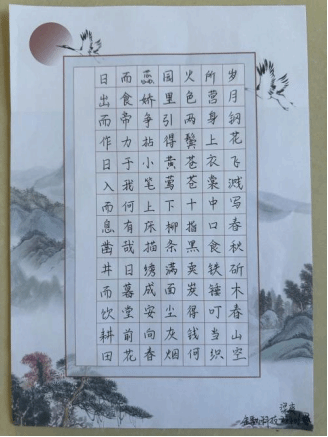 岁月钢花飞溅写春秋斫木春山空
所营身上衣裳中口食铁锤叮当织
火色两鬓苍苍十指黑卖炭得钱何
园里引得黄莺下柳条满面尘灰烟
蕊娇争拈小笔上床描绣成安向春
而食帝力于我何有哉日暮堂前花
日出而作日入而息凿井而饮耕田